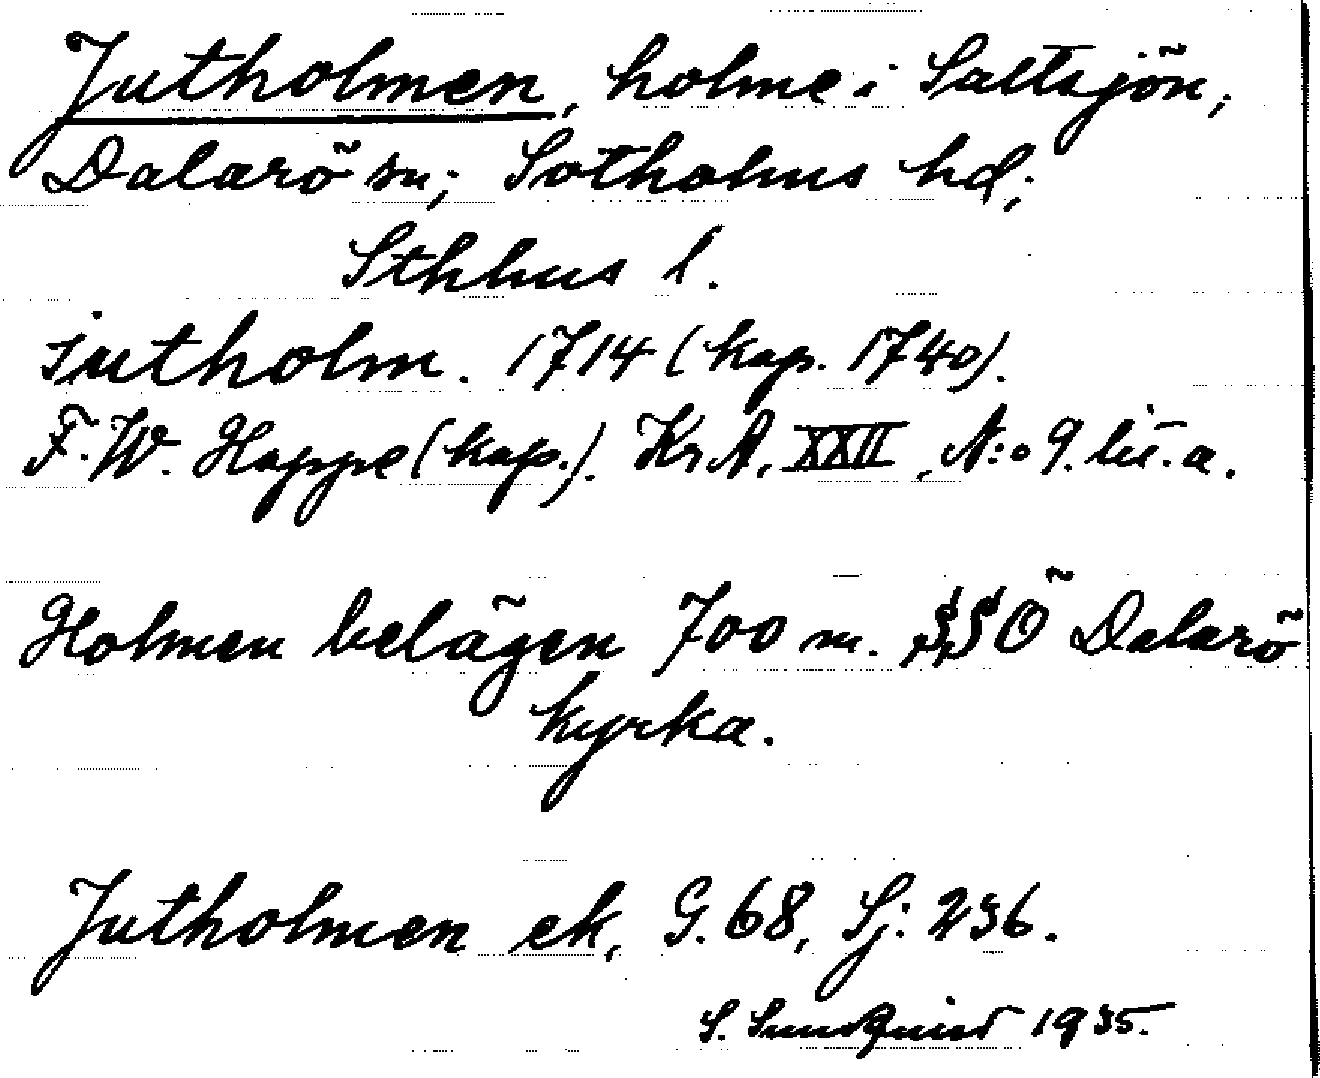 Jutholmen, holme i Saltsjön,
Dalarö sn; Sotholms hd;
Sthlms l.
jutholm. 1714 (kop. 1740).
F. W. Hoppe (kop.). KrA, XXII, N:o 9. lit. a.
Holmen belägen 700 m. SSÖ Dalarö
kyrka.
Jutholmen ek, G. 68, Sj: 236.
S. Sundquist 1935.